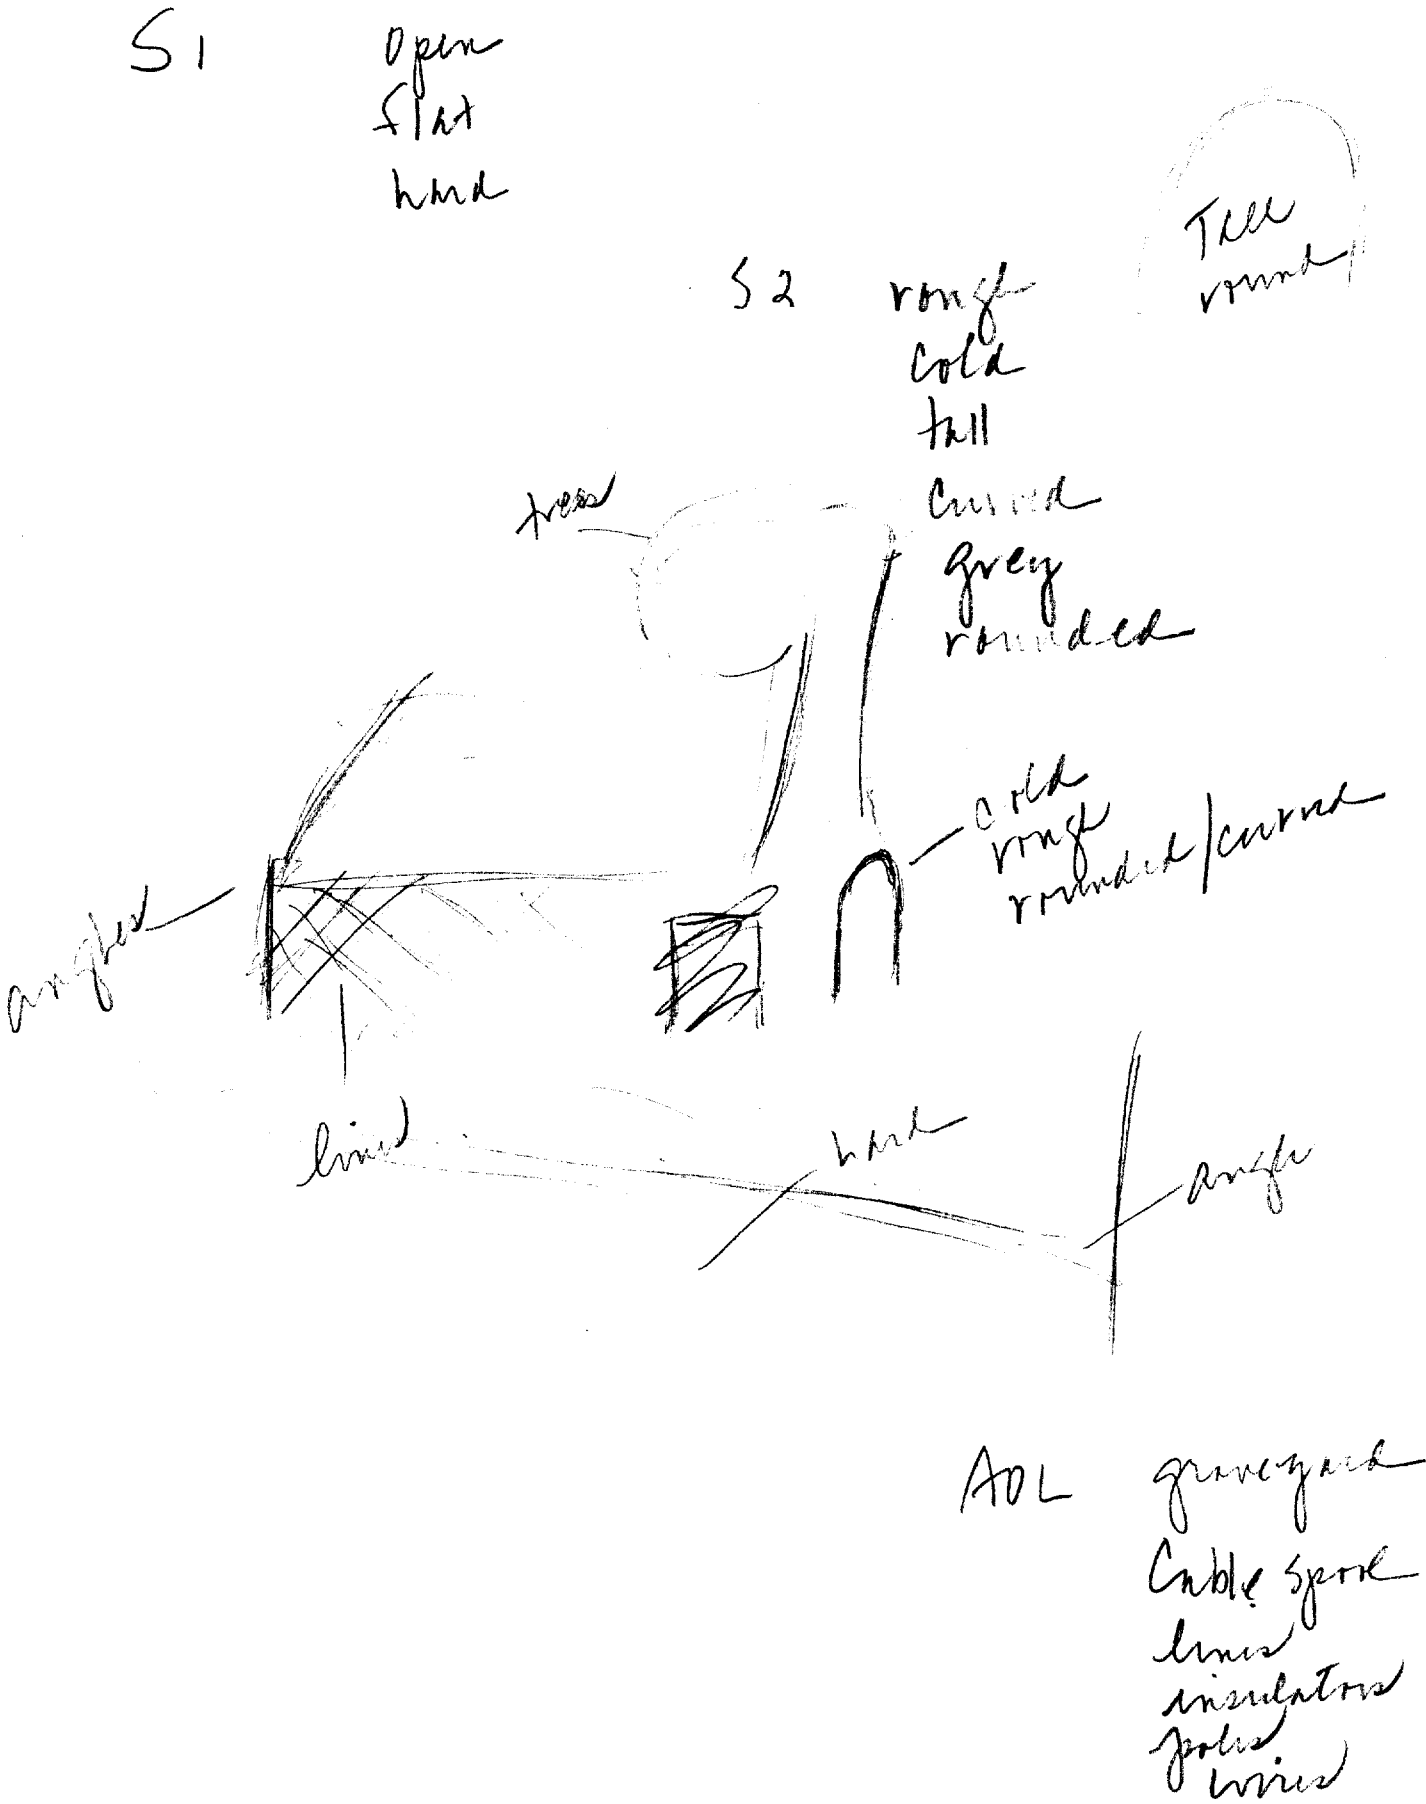 S1 open
flat
hard
Tall
round
S2 rough
cold
tall
curved
grey
rounded
trees
cold
rough
rounded/curved
angles
lines
hard
angle
AOL graveyard
Cable spool
lines
insulators
poles
wires